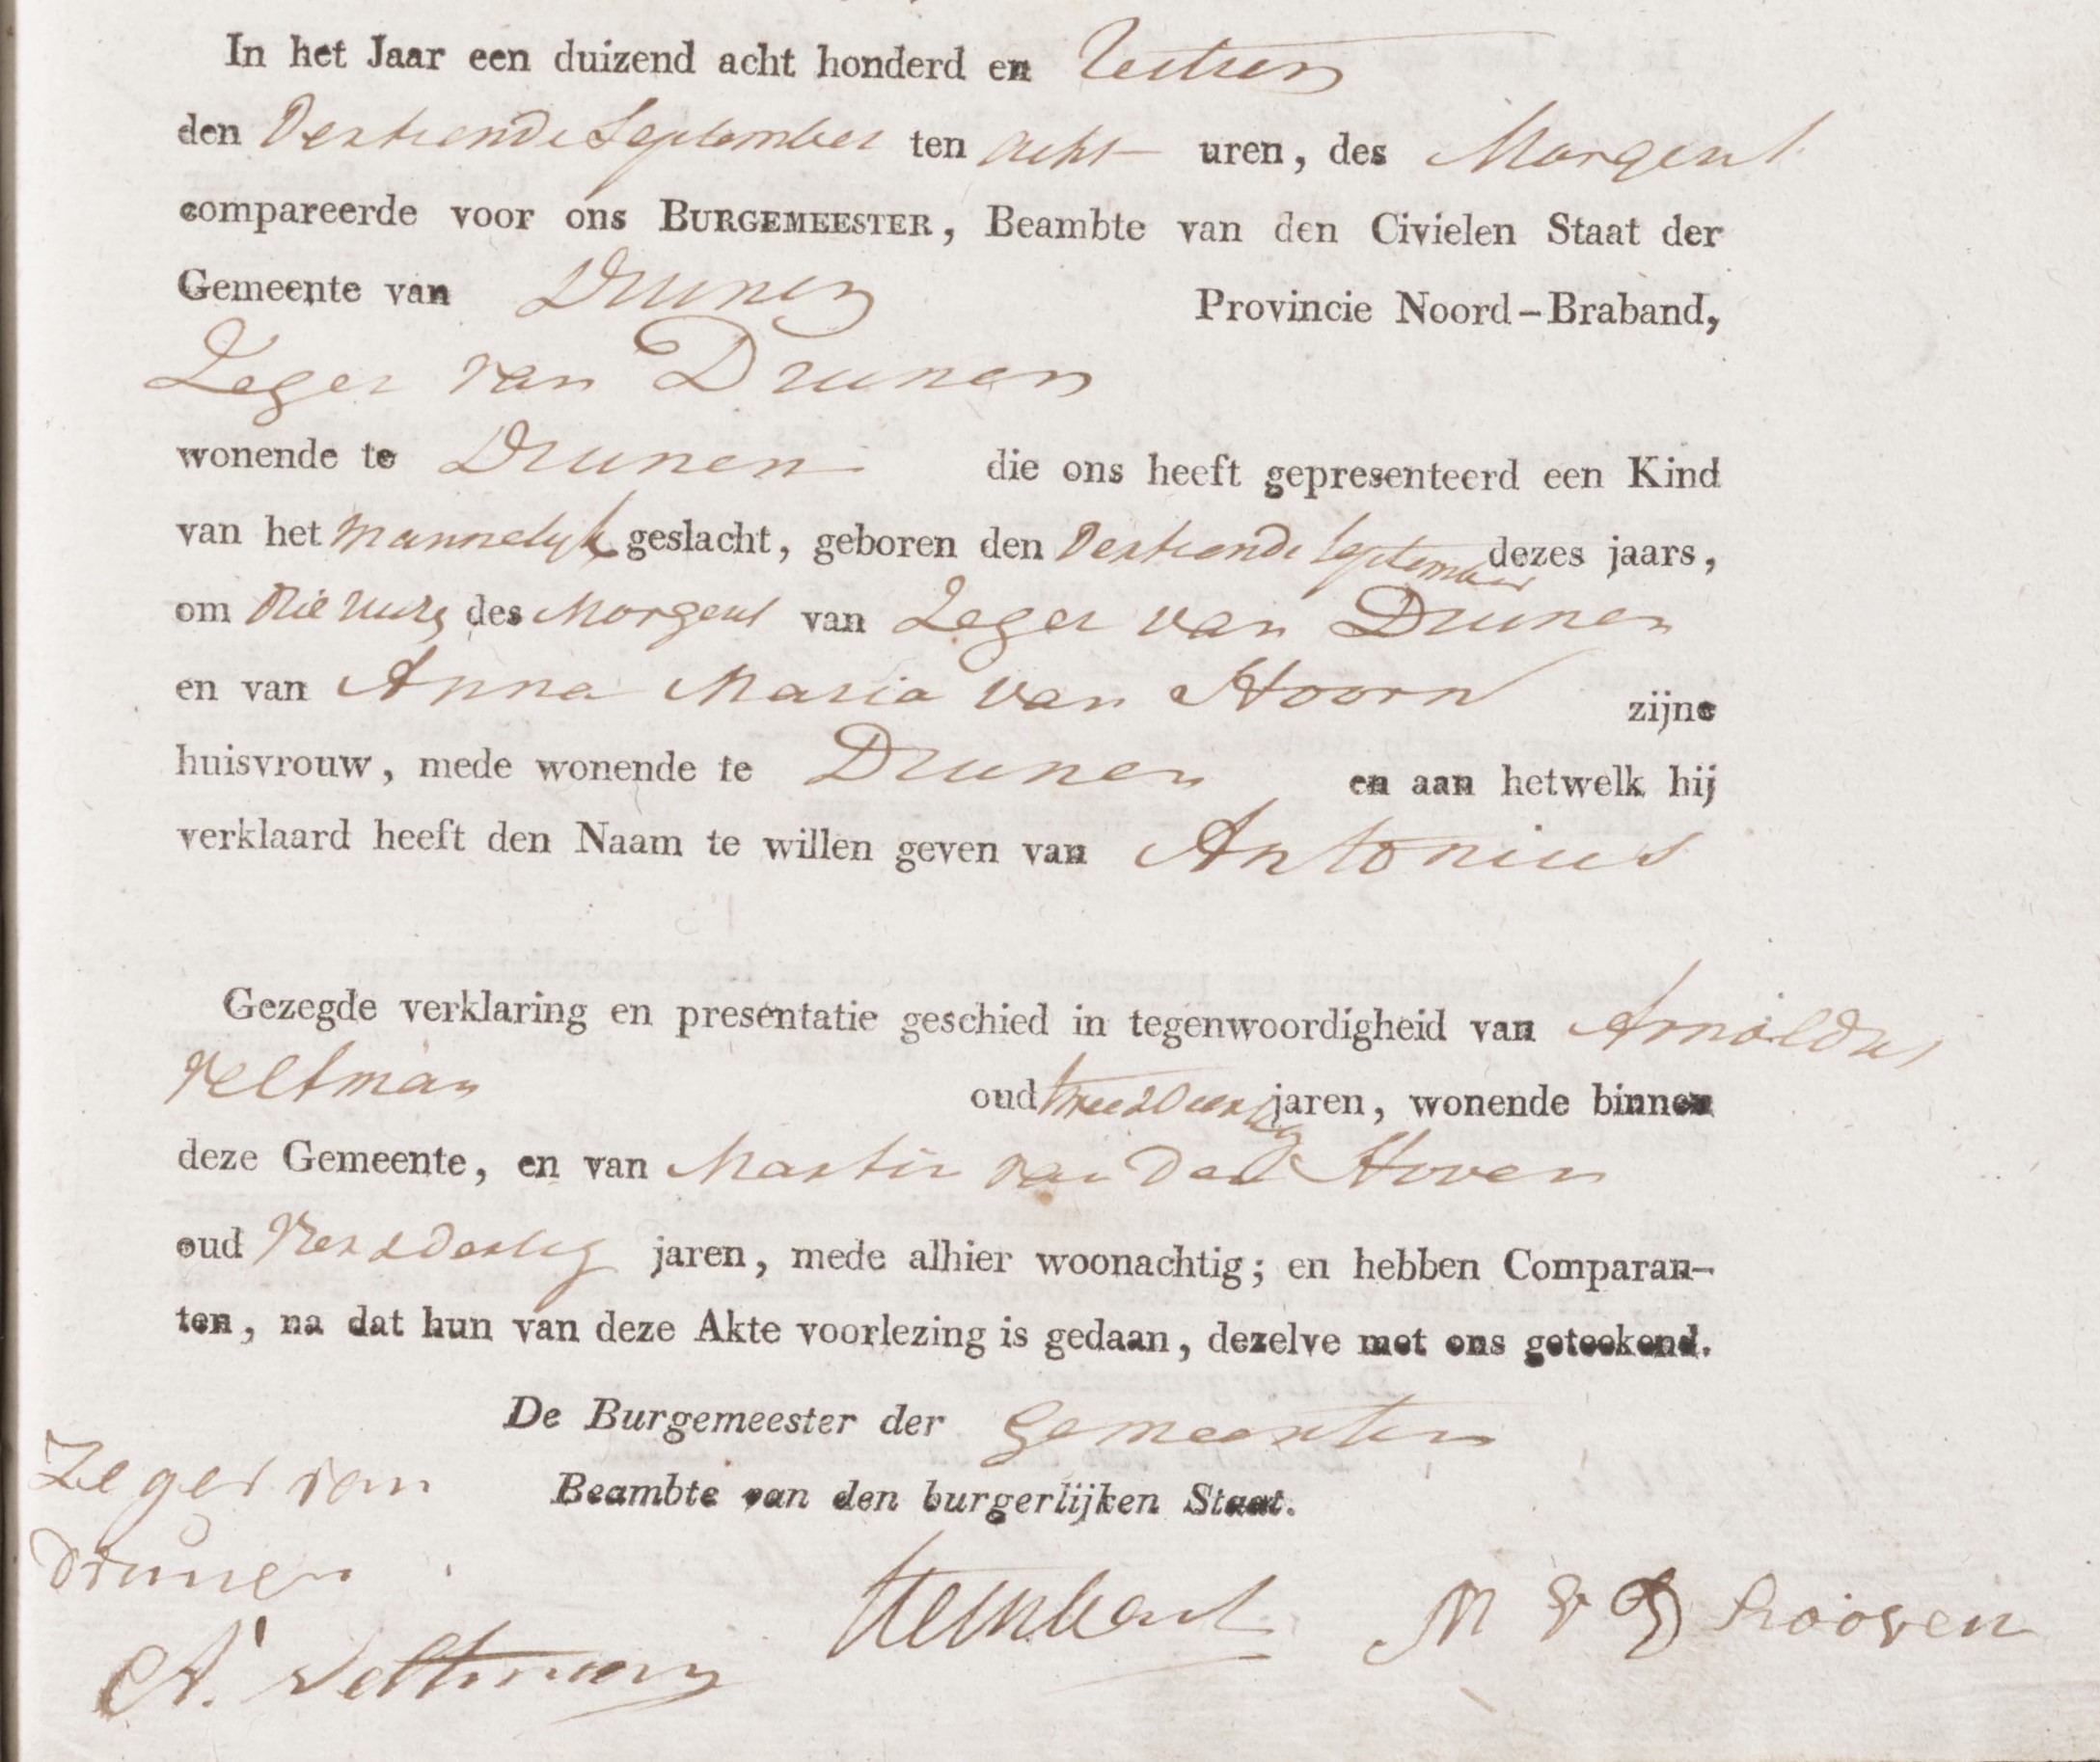 In het Jaar een duizend acht honderd en Zestien
den Dertiende September ten acht uren, des Morgens
compareerde voor ons BURGEMEESTER, Beambte van den Civielen Staat der
Gemeente van Drunen Provincie Noord-Braband,
Zeger van Drunen
wonende te Drunen die ons heeft gepresenteerd een Kind
van het mannelyk geslacht, geboren den Dertiende September dezes jaars,
om Drie uure des Morgens van Zeger van Drunen
en van Anna Maria van Hoorn zijne
huisvrouw, mede wonende te Drunen en aan hetwelk hij
verklaard heeft den Naam te willen geven van Antonius
Gezegde verklaring en presentatie geschied in tegenwoordigheid van Arnoldus
Veltman oud twee & Dertig jaren, wonende binnen
deze Gemeente, en van Martin van Den Hoven
oud & Dertig jaren, mede alhier woonachtig; en hebben Comparan-
ten, na dat hun van deze Akte voorlezing is gedaan, dezelve met ons geteekend.
De Burgemeester der Gemeente
Beambte van den burgerlijken Staat.
Zeger van
Drunen
A. Veltman
M V D hooven